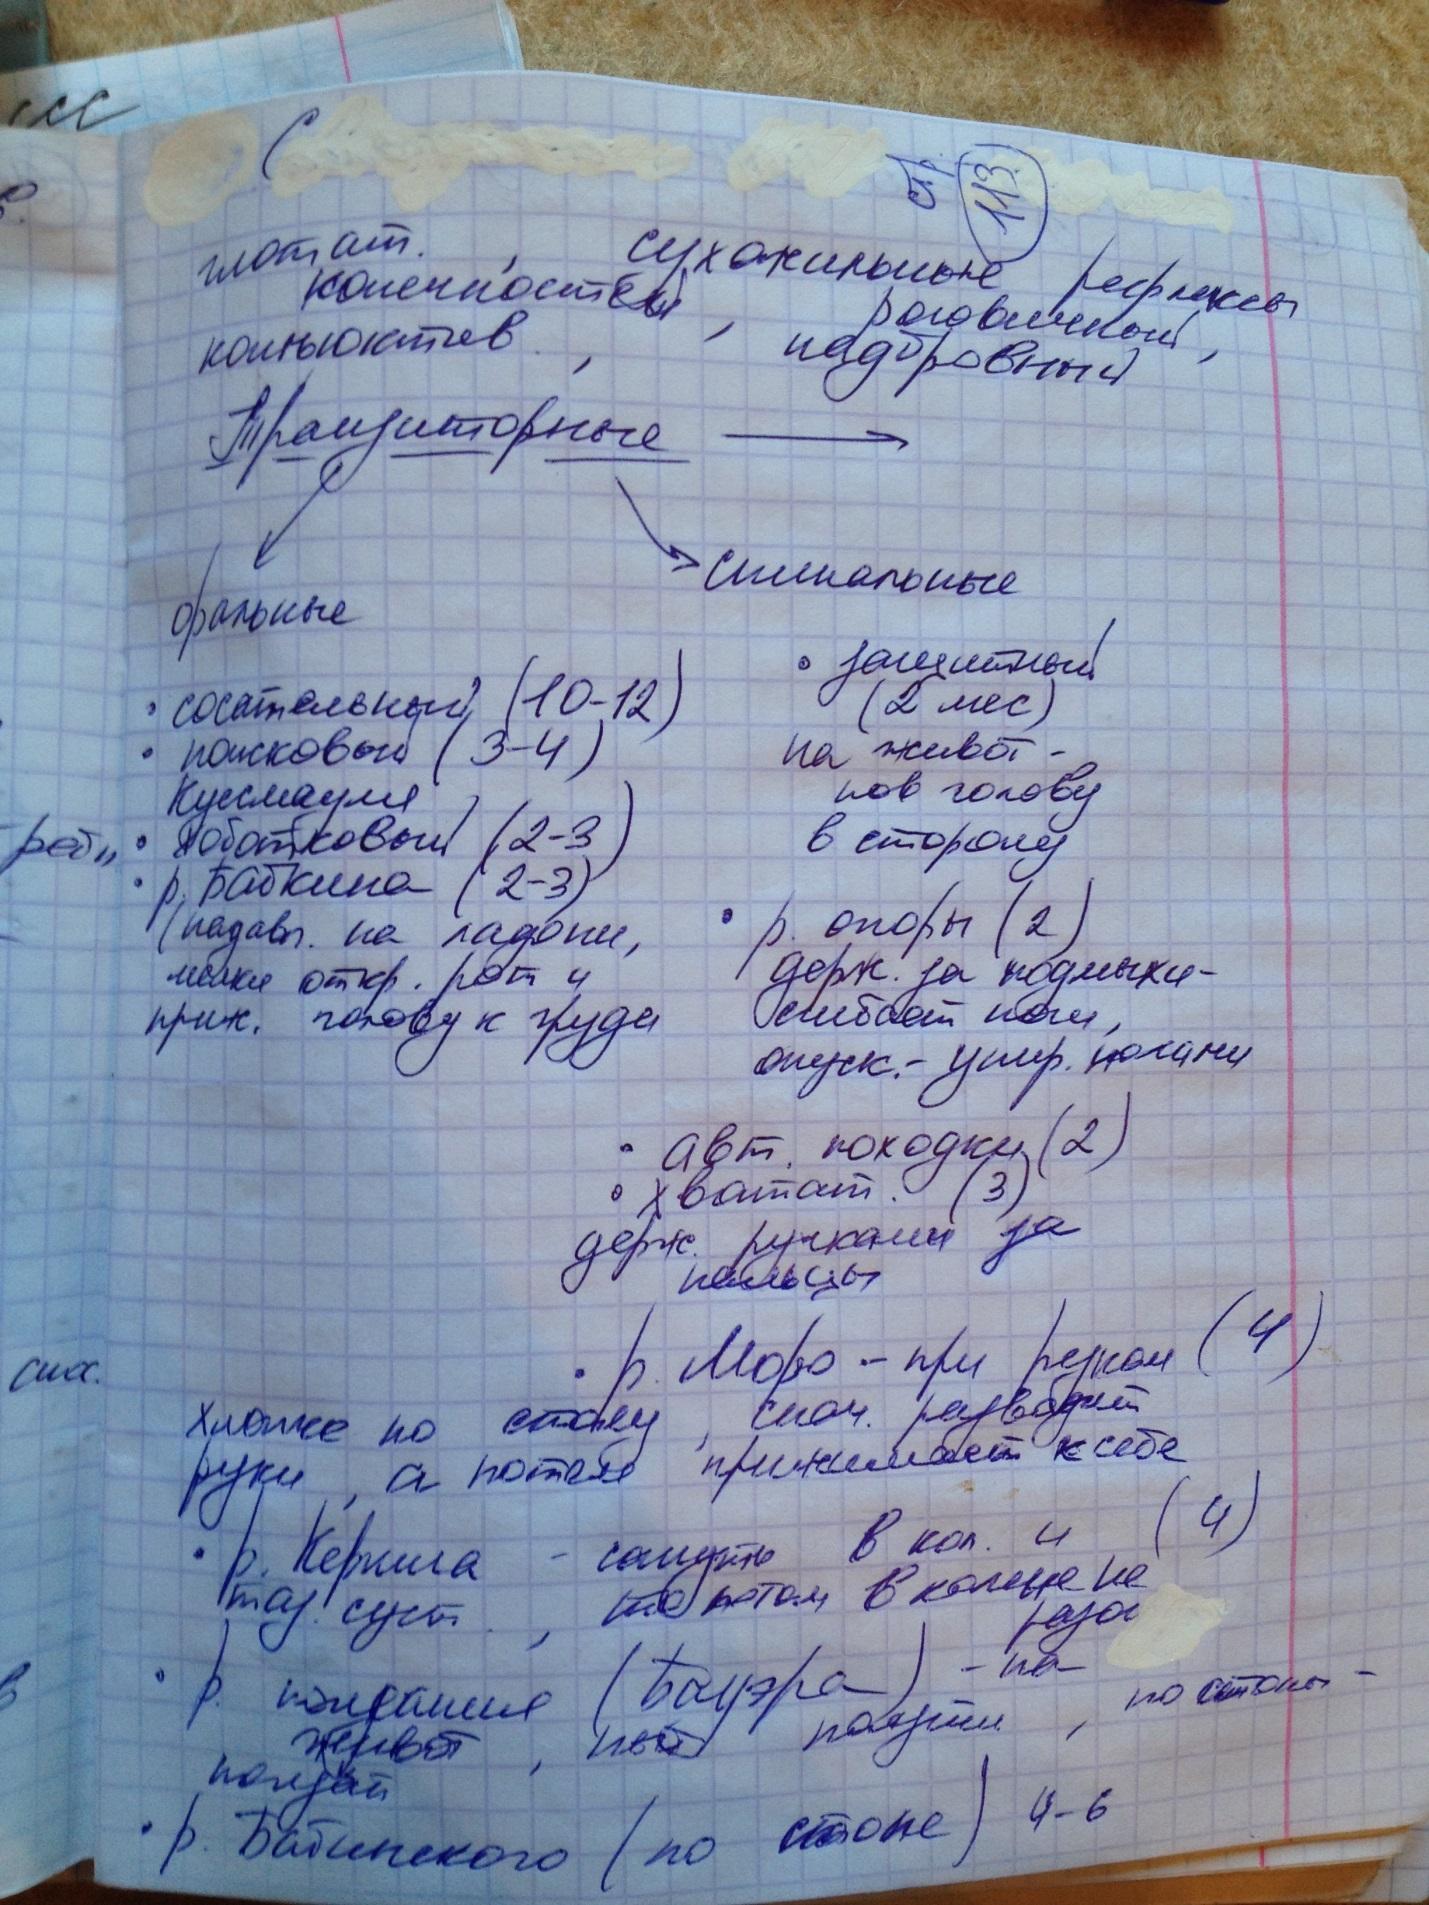 стр. 113.
глотат. , сухожильные рефлексы
конечностей , роговичный,
конъюктив. , надбровный
Транзиторные →
оральные
• сосательный (10-12)
• поисковый (3-4)
Куссмауля
• хоботковый (2-3)
• р. Бабкина (2-3)
(надавл. на ладони,
откр. рот и
приж. голову к груди
спинальные
• защитный
(2 мес)
на живот -
пов голову
в сторону
• р. опоры (2)
держ. за подмышки-
сгибает ноги,
опуск. - упир. ногами
• авт. походки (2)
• хватат. (3)
держ. ручками за
пальцы
• р. Моро - при резком (4)
хлопке по столу, снач. разводит
руки, а потом прижимает к себе
• р. Кернига - согнуть в кол. и (4)
таз. суст. , то потом в колене не
разог
• р. ползания (Бауэра) - на
живот, ползти, по стопы -
ползёт
• р. Бабинского (по стопе) 4-6
реб